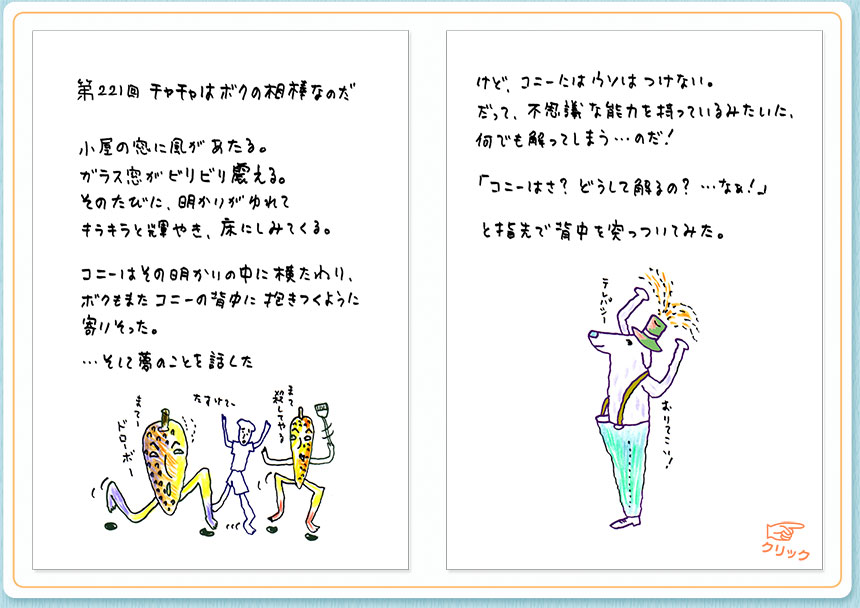 第221回 チャチャはボクの相棒なのだ
小屋の窓に風があたる。
ガラス窓がビリビリ震える。
そのたびに、明かりがゆれて
キラキラと輝やき、床にしみてくる。
コニーはその明かりの中に横たわり、
ボクもまたコニーの背中に抱きつくように
寄りそった。
…そして夢のことを話した
まてー
ドローボー
たすけてー
まて
殺してやる
けど、コニーにはウソはつけない。
だって、不思議な能力を持っているみたいに、
何でも解ってしまう…のだ!
「コニーはさ? どうして解るの? …なぁ!」
と指先で背中を突っついてみた。
テレパシー
おりてこい!
クリック